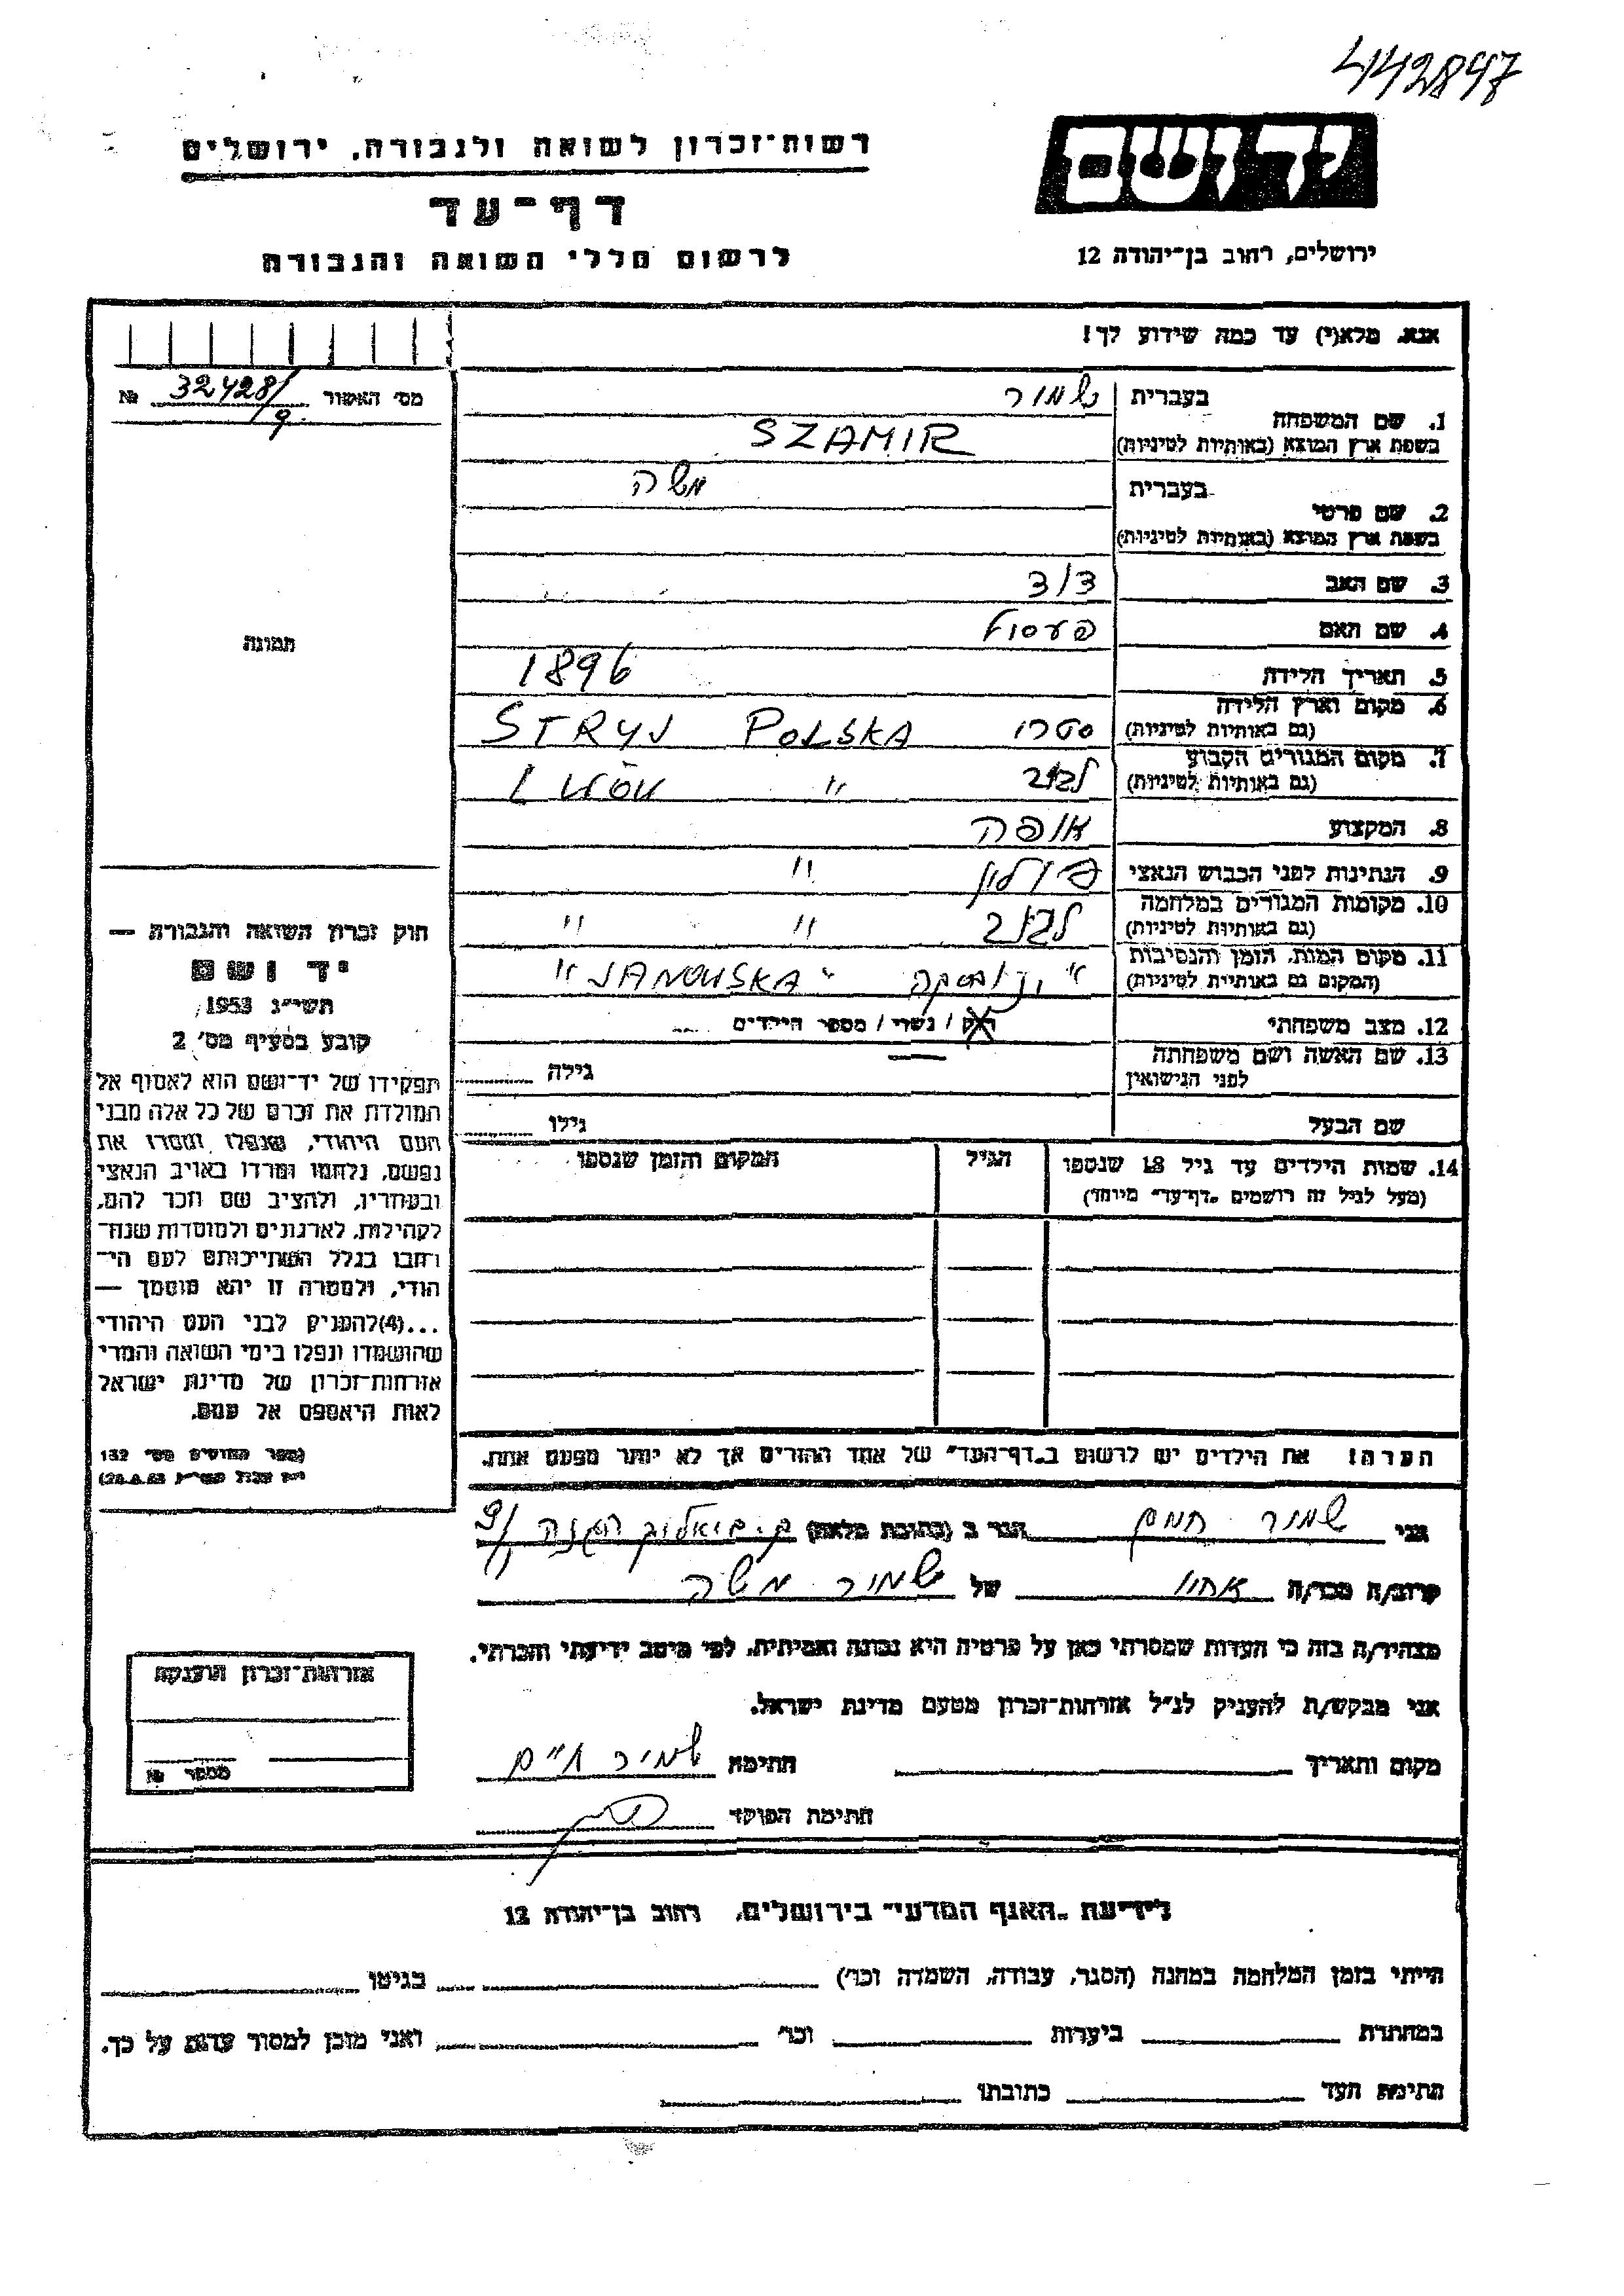 442847
יד ושם
רשות־זכרון לשואה ולגבורה, ירושלים
דף־עד
לרשום חללי השואה והגבורה
ירושלים, רחוב בן־יהודה 12
אנא, מלא(י) עד כמה שידוע לך!
מס' האשור 32428/9 №
1. שם המשפחה
בעברית שמיר
בשפת ארץ המוצא (באותיות לטיניות) SZAMIR
2. שם פרטי
בעברית משה
בשפת ארץ המוצא (באותיות לטיניות)
3. שם האב
4. שם האם
5. תאריך הלידה 1896
6. מקום וארץ הלידה
(גם באותיות לטיניות) סטרי POLSKA STRYJ
7. מקום המגורים הקבוע
(גם באותיות לטיניות) לבוב " LWÓW
8. המקצוע אופה
9. הנתינות לפני הכבוש הנאצי פולין "
10. מקומות המגורים במלחמה
(גם באותיות לטיניות) לבוב " "
11. מקום המות, הזמן והנסיבות
(המקום גם באותיות לטיניות) "ינובסקה" "JANOWSKA"
12. מצב משפחתי רוק / נשוי / מספר הילדים
13. שם האשה ושם משפחתה
לפני הנישואין — גילה
שם הבעל גילו
14. שמות הילדים עד גיל 18 שנספו הגיל המקום והזמן שנספו
(מעל לגיל זה רושמים „דף־עד" מיוחד)
הערה! את הילדים יש לרשום ב„דף־העד" של אחד ההורים אך לא יותר מפעם אחת.
תמונה
חוק זכרון השואה והגבורה —
יד ושם
תשי״ג 1953
קובע בסעיף מס' 2
תפקידו של יד־ושם הוא לאסוף אל
המולדת את זכרם של כל אלה מבני
העם היהודי, שנפלו ומסרו את
נפשם, נלחמו ומרדו באויב הנאצי
ובעוזריו, ולהציב שם וזכר להם,
לקהילות, לארגונים ולמוסדות שנח־
רבו בגלל השתייכותם לעם הי־
הודי, ולמטרה זו יהא מוסמך —
...(4)להעניק לבני העם היהודי
שהושמדו ונפלו בימי השואה והמרי
אזרחות־זכרון של מדינת ישראל
לאות היאספם אל עמם.
(ספר החוקים מס' 132
אני שמיר חיים הגר ב (כתובת מלאה) ק. ביאליק
קרוב/ה מכר/ה אחיו של שמיר משה
מצהיר/ה בזה כי העדות שמסרתי כאן על פרטיה היא נכונה ואמיתית, לפי מיטב ידיעתי והכרתי.
אני מבקש/ת להעניק לנ״ל אזרחות־זכרון מטעם מדינת ישראל.
מקום ותאריך חתימה שמיר חיים
חתימת הפוקד
אזרחות־זכרון הוענקה
מספר №
לידיעת „האגף המדעי" בירושלים, רחוב בן־יהודה 12
הייתי בזמן המלחמה במחנה (הסגר, עבודה, השמדה וכו') בגיטו
במחתרת ביערות וכו' ואני מוכן למסור עדות על כך.
חתימת העד כתובתו